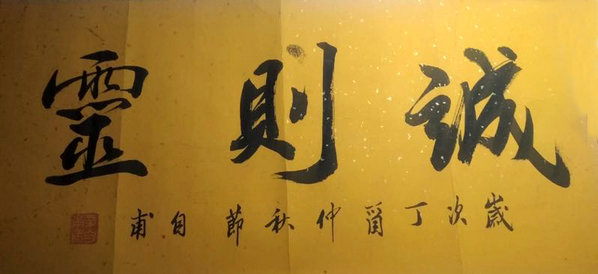 誠則靈
歲次丁酉仲秋節自甫